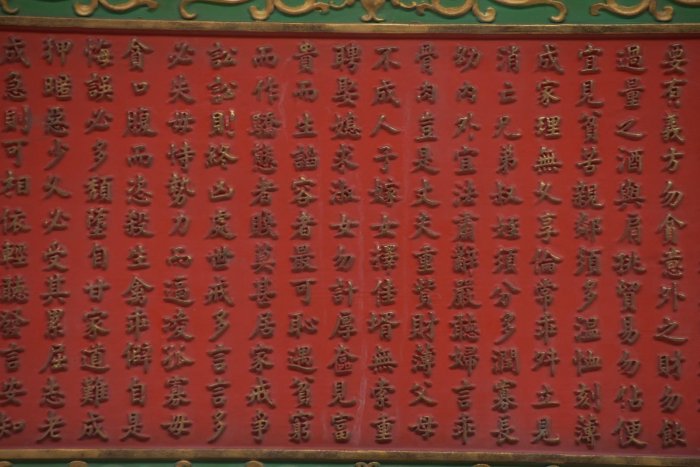 要有義方勿貪意外之財勿飲
過量之酒與肩挑貿易勿佔便
宜見貧苦親鄰須多溫恤刻薄
成家理無久享倫常乖舛立見
消亡兄弟叔姪須分多潤寡長
幼內外宜法肅辭嚴聽婦言乖
骨肉豈是丈夫重資財薄父母
不成人子嫁女擇佳壻無索重
聘娶媳求淑女勿計厚奩見富
貴而生諂容者最可恥遇貧窮
而作驕態者賤莫甚居家戒爭
訟訟則終凶處世戒多言言多
必失毋恃勢力而逼凌孤寡毋
貪口腹而恣殺生禽乖僻自是
悔誤必多頹惰自甘家道難成
狎暱惡少久必受其累屈志老
成急則可相依輕聽發言安知